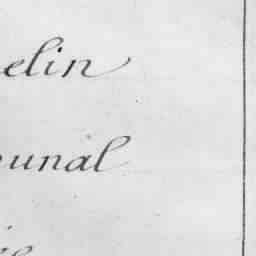 elin
unal